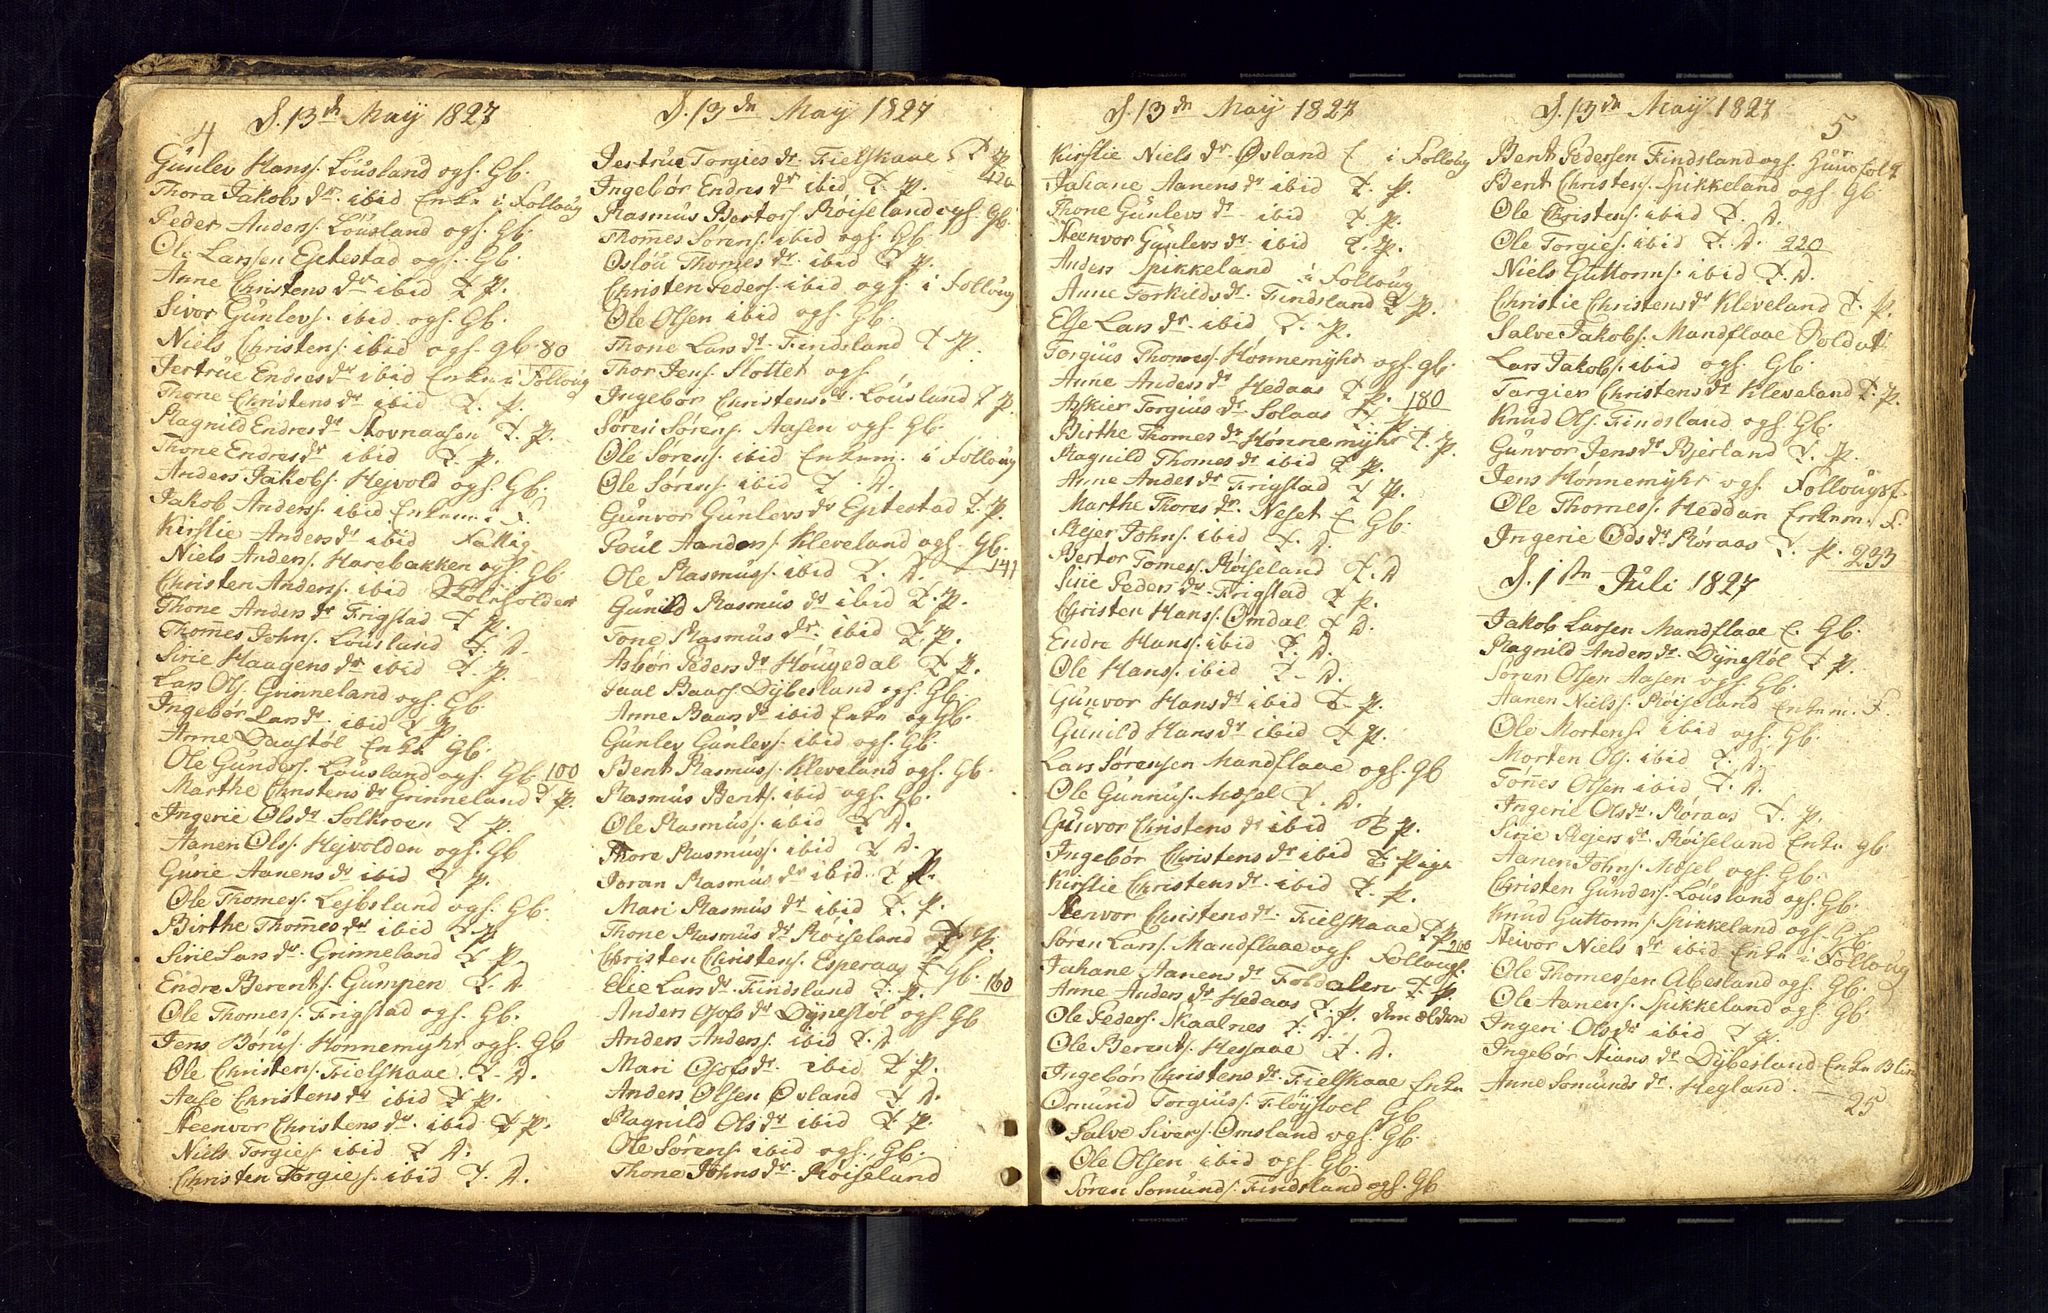 4
D. 13th May 1827
Gunlev Hans. Lousland ogs. Gb.
Thora Jakobs dr. ibid Enke i Følloug
Peder Anders. Lousland ogs. Gb.
Ole Larsen Eptestad ogs. Gb.
Anne Christens dr ibid T. P.
Sivor Gunlevs. ibid ogs. Gb.
Niels Christens. ibid ogs. gb 80
Jertrue Endres dr ibid Enke i Følloug
Thone Christens dr ibid T. P.
Ragnild Endres dr Rovnaasen T. P.
Thone Endres dr ibid T. P.
Anders Jakobs. Hejvold ogs. Gb.
Jakob Anders. ibid Enkem. i F.
Kirstie Anders dr ibid Fattig
Niels Anders. Harebakken ogs Gb.
Christen Anders. ibid Skoleholder
Thone Anders dr Frigstad T. P.
Thommes Johns. Lousland T. D.
Sirie Haagens dr ibid T. P.
Lars Ols. Grinneland ogs. Gb.
Ingebor Lars dr. ibid T. P.
Anne Daastøl Enke Gb.
Ole Gunders. Lousland ogs. Gb. 100
Marthe Christens dr Grinneland T. P.
Ingerie Ols dr Solkroen T. P.
Aanen Ols. Hejvolden ogs. Gb
Gurie Aanens dr ibid T. P.
Ole Thomes. Lejbsland ogs. Gb.
Birthe Thommes dr ibid T. P.
Sirie Lars dr. Grinneland T. P.
Endre Berents. Gumpen T. D
Ole Thomes. Frigstad ogs. Gb.
Jens Børus. Hønnemyhr ogs. Gb
Ole Christens. Fielskaae T. D.
Aase Christens dr ibid T. P.
Steenvor Christens dr. ibid T. P.
Niels Torgies. ibid T. D.
Christen Torgies. ibid T. D.
D. 13de May 1827
Jertrue Torgies dr. Fielskaae T. P.
120
Ingebør Endres dr ibid T. P.
Rasmus Bertors. Røiseland ogs. Gb.
Thommes Sørens. ibid ogs. Gb.
Oslou Thomes dr. ibid T. P.
Christen Peders. ibid ogs. i Følloug
Ole Olsen ibid ogs. Gb.
Thone Lars dr. Findsland T. P.
Thor Jens. Slottet ogs.
Ingebor Christens dr. Lousland T. P.
Søren Sørens. Aasen ogs. Gb.
Ole Sørens. ibid Enkem. i Følloug
Ole Sørens. ibid T. D.
Gunvor Gunlevs dr Eptestad T. P.
Poul Aanders. Kleveland ogs. Gb.
Ole Rasmuss. ibid T. D. 141
Gunild Rasmus dr ibid T. P.
Tone Rasmus dr. ibid T. P.
Asbør Peders dr Hougedal T. P.
Paal Baars. Dybesland ogs. Gb.
Anne Baars dr ibid Enke og Gb.
Gunlev Gunlevs. ibid ogs. Gb.
Bent Rasmuss. Kleveland ogs. Gb
Rasmus Bents. ibid ogs. Gb.
Ole Rasmuss. ibid T. D.
Thore Rasmuss. ibid T. D.
Joran Rasmus dr ibid. T. P.
Mari Rasmus dr ibid T. P.
Thone Rasmus dr Røiseland T. P.
Christen Christens. Esperaas T. Gb.
Elie Lars dr. Findsland T. P. 160
Anders Osols dr Dynestøl ogs. Gb
Anders Anders. ibid T. D
Mari Osols dr. ibid T. P.
Anders Olsen Øsland T. D.
Ragnild Ols dr ibid T. P.
Ole Sørens. ibid ogs. Gb.
Thone Johns dr. Røiseland
D. 13de May 1827
Kirstie Niels dr. Øsland E. i Følloug
Jahane Aanens dr ibid T. P.
Thone Gunlevs dr. ibid T. P.
Steenvor Gunlevs dr. ibid T. P.
Anders Spikkeland i Følloug
Anne Torkilds dr. Findsland T. P.
Else Lars dr. ibid T. P.
Torgius Thomes. Hønnemyhr ogs. gb.
Anne Anders dr Hedaas T. P.
Asskier Torgius dr Solaas T. P. 180
Birthe Thomes dr Hønnemyhr T. P.
Ragnild Thomes dr ibid T. P.
Anne Anders dr Frigstad T. P.
Marthe Thores dr. Neset E. Gb.
Rejer Johns. ibid T. D.
Bertor Tomes. Røiseland T. D
Sirie Peders dr. Frigstad T. P.
Christen Hans. Omdal T. D.
Endre Hans. ibid T. D.
Ole Hans. ibid T. D.
Gunvor Hans dr ibid T. P.
Gunild Hans dr ibid T. P.
Lars Sørensen Mandflaae ogs. Gb
Ole Gunnus. Mæsel T. D.
Gunvor Christens dr ibid T. P.
Ingebør Christens dr ibid T. Pige
Kirstie Christens dr. ibid T. P.
Steenvor Christens dr. Fielskaae T. P.
200
Søren Lars. Mandflaae ogs. Føllougs.
Jahane Aanens dr Foss dalen T. P.
Anne Anders dr Hedaas T. P. den ældre
Ole Peders. Skaalnes T. D.
Ole Berents. Hessaae T. D.
Ingebør Christens dr. Fielskaae Enke
Omund Torgius. Fløystoel Gb
Salve Sivers. Omsland ogs. Gb.
Ole Olsen ibid ogs. Gb.
Søren Somunds. Findsland ogs. Gb
5
D. 13de May 1827
Bent Pedersen Findsland ogs. Huusfolk
Bent Christens. Spikkeland ogs. Gb.
Ole Christens. ibid T. D.
Ole Torgies. ibid T. D. 220
Niels Guttorms. ibid T. D.
Christie Christens dr Kleveland T. P.
Salve Jakobs. Mandflaae Soldat
Lars Jakobs. ibid ogs. Gb.
Targier Christens dr Kleveland T. P.
Knud Ols. Findsland ogs Gb.
Gunvor Jens dr Bjerland T. P.
Jens Hønnemyhr ogs. Føllougsf.
Ole Thomes. Heddan Enkem. F.
Ingerie Ods dr Røraas T. P. 233
D. 1ste Juli 1827
Jakob Larsen Mandflaae E. Gb.
Ragnild Anders dr. Dynestøl T. P.
Søren Olsen Aasen ogs. Gb.
Aanen Niels. Røiseland Enkem. F.
Ole Mortens. ibid ogs. Gb.
Morten Ols. ibid T. D.
Tommes Olsen ibid T. D.
Ingeril Ols dr. Røraas T. P.
Sirie Rejers dr. Røiseland Enke gb.
Aanen Johns. Mæsel ogs. Gb.
Christen Gunders. Lousland ogs. Gb.
Knud Guttorms. Spikkeland ogs. Gb.
Steivor Niels dr ibid Enke i Følloug
Ole Thomessen Abesland ogs. Gb.
Ole Aanens. Spikkeland ogs. Gb.
Ingeri Ols dr ibid T. P.
Ingebør Stians dr. Dybesland Enke Blin
Anne Somunds dr. Hegland
25